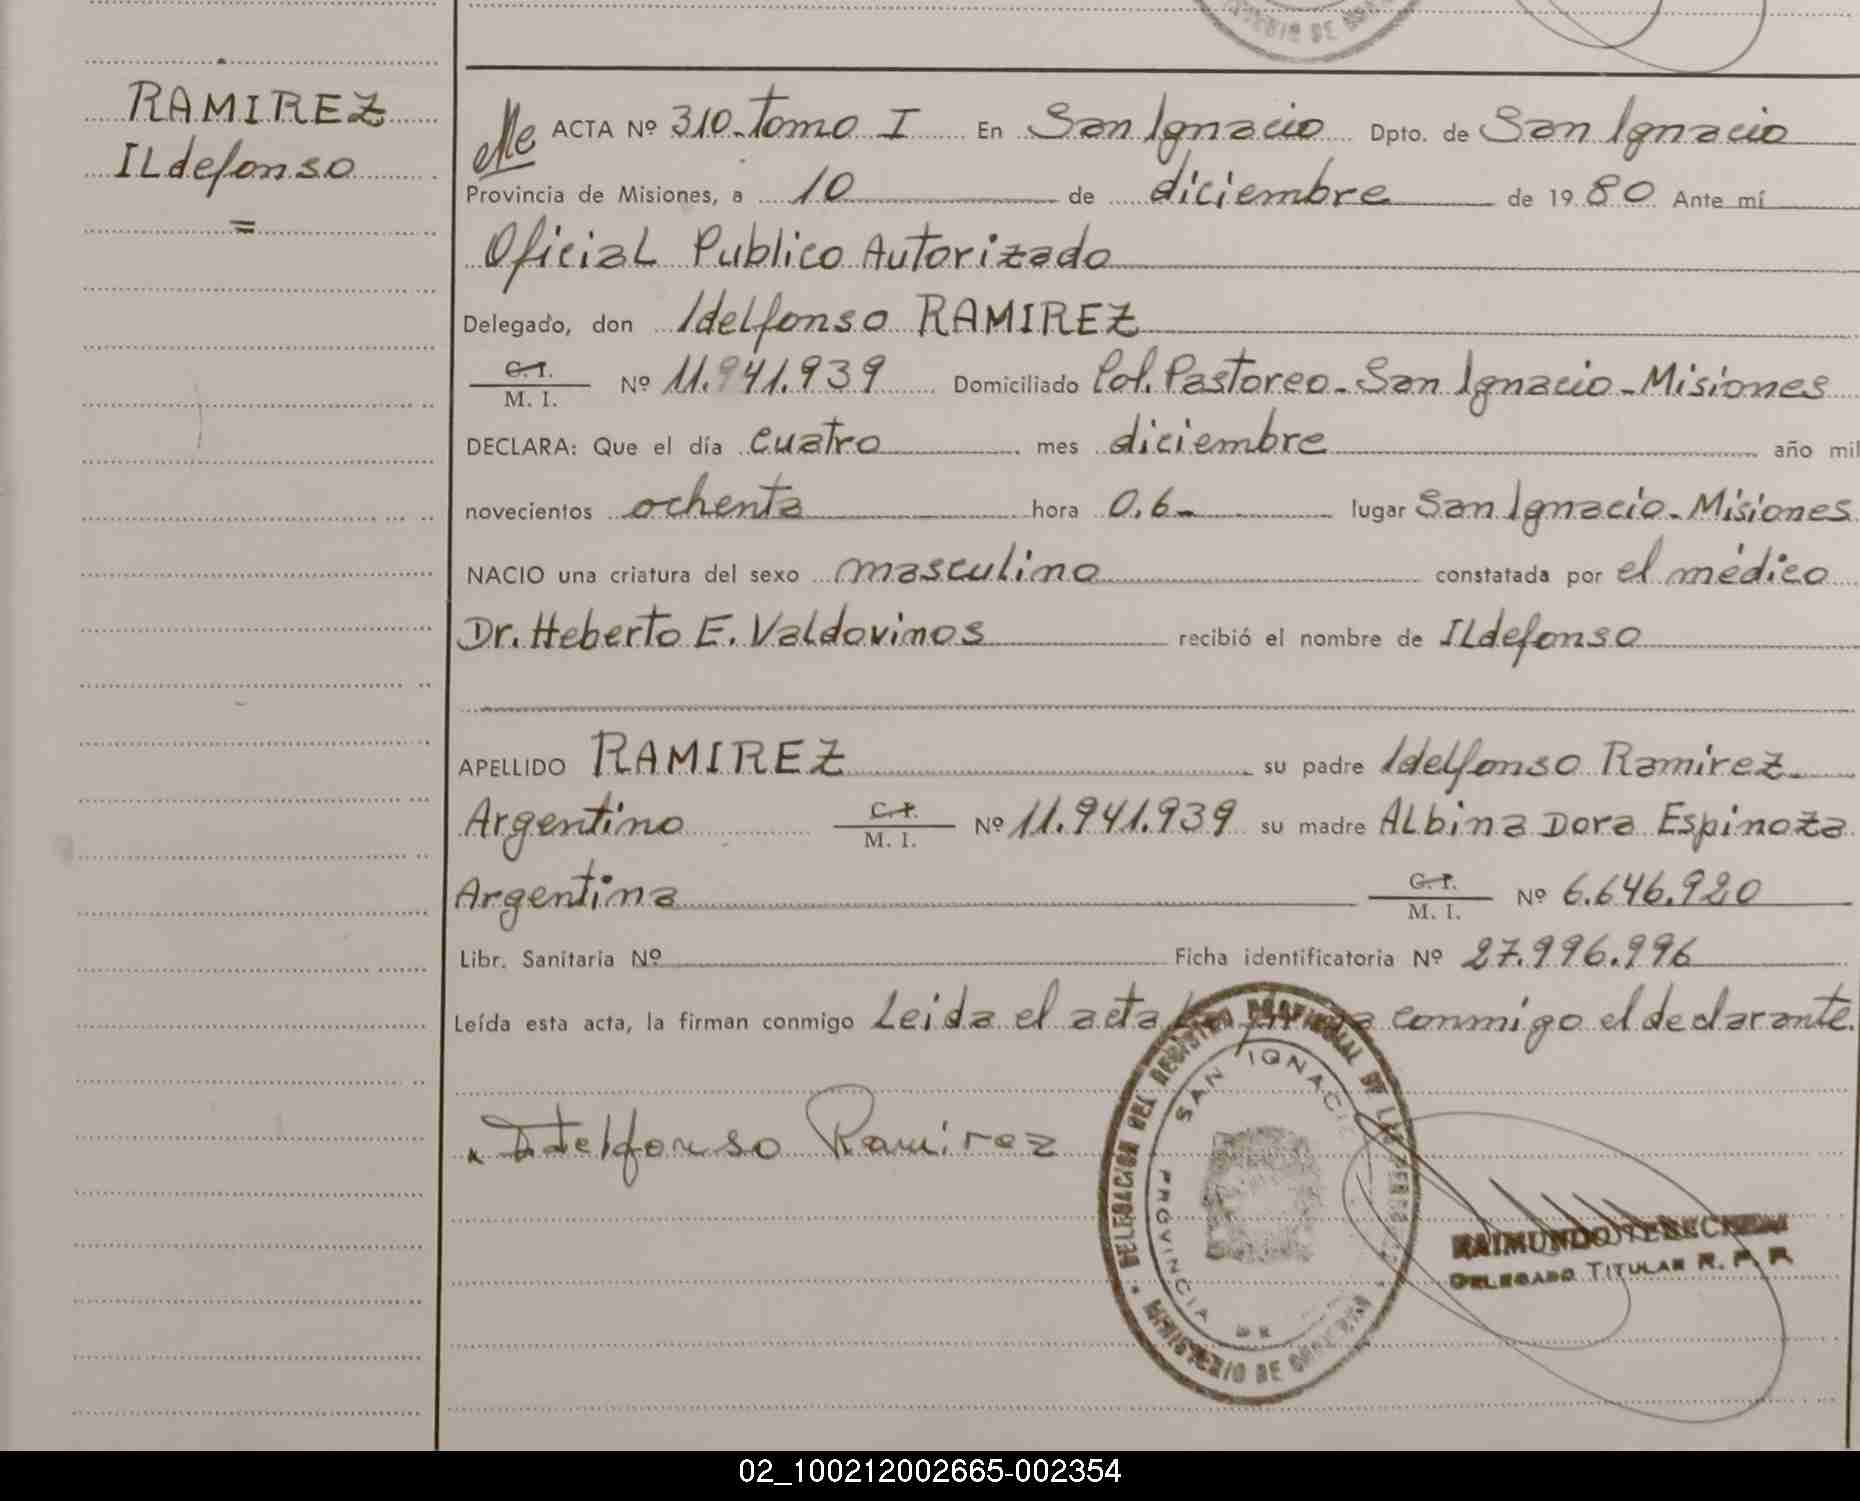 RAMIREZ
ILdefonso
=
ACTA Nº 310. Tomo I En San Ignacio Dpto. de San Ignacio
Provincia de Misiones, a 10 de diciembre de 1980 Ante mí
Oficial Publico Autorizado
Delegado, don Idelfonso RAMIREZ
C.I. M. I. Nº 11.941.939 Domiciliado Col. Pastoreo - San Ignacio - Misiones
DECLARA: Que el día cuatro mes diciembre año mil
novecientos ochenta hora 0,6- lugar San Ignacio - Misiones
NACIO una criatura del sexo masculino constatada por el médico
Dr. Heberto E. Valdovinos recibió el nombre de ILdefonso
APELLIDO RAMIREZ su padre Idelfonso Ramirez
Argentino C.I. M. I. Nº 11.941.939 su madre ALbina Dora Espinoza
Argentina C.I. M. I. Nº 6.646.920
Libr. Sanitaria Nº Ficha identificatoria Nº 27.996.996
Leída esta acta, la firman conmigo Leida el acta conmigo el declarante.
Idelfonso Ramirez
DELEGACION DEL REGISTRO PROVINCIAL DE LAS PERSONAS
SAN IGNACIO
PROVINCIA DE
MINISTERIO DE GOBIERNO
RAIMUNDO
DELEGADO TITULAR R. P. P.
MINISTERIO DE
02_100212002665-002354